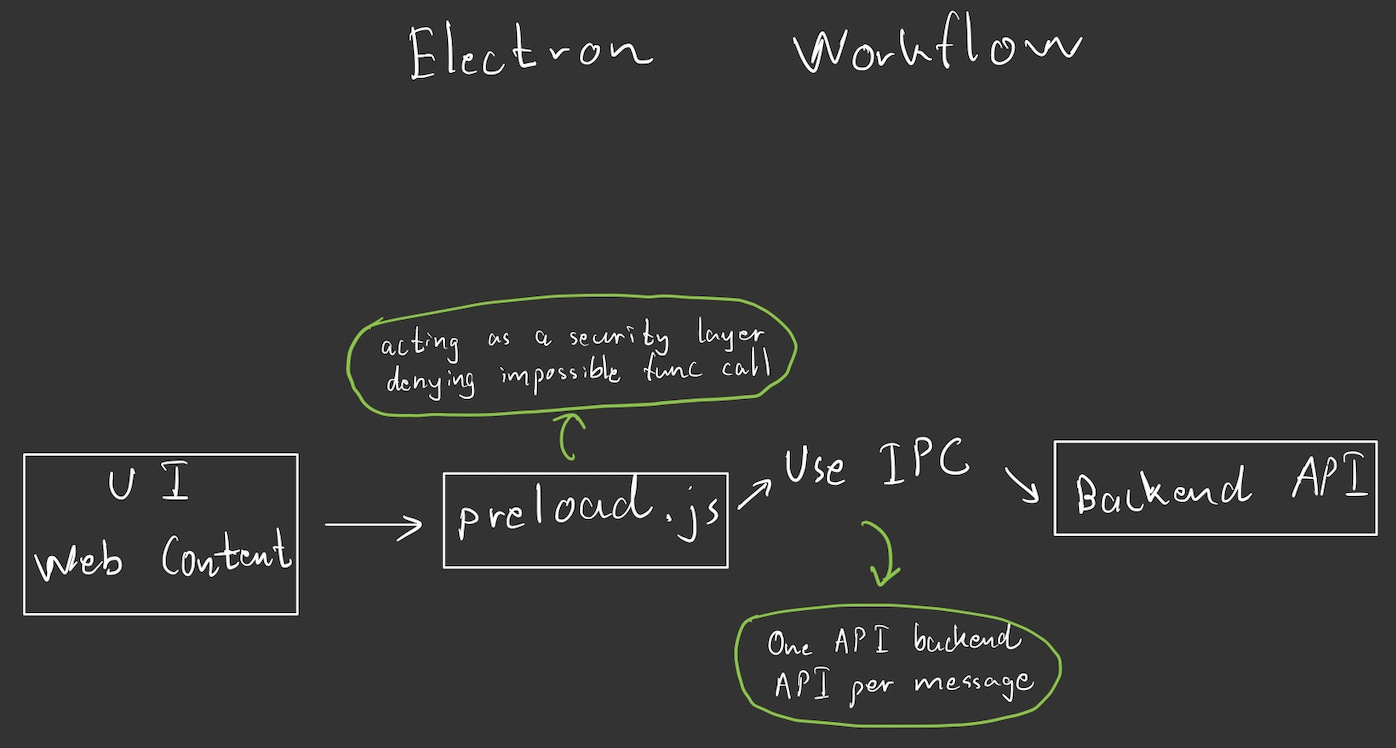 Electron Workflow
acting as a security layer
denying impossible func call
UI
Web Content
preload.js
Use IPC
Backend API
One API backend
API per message